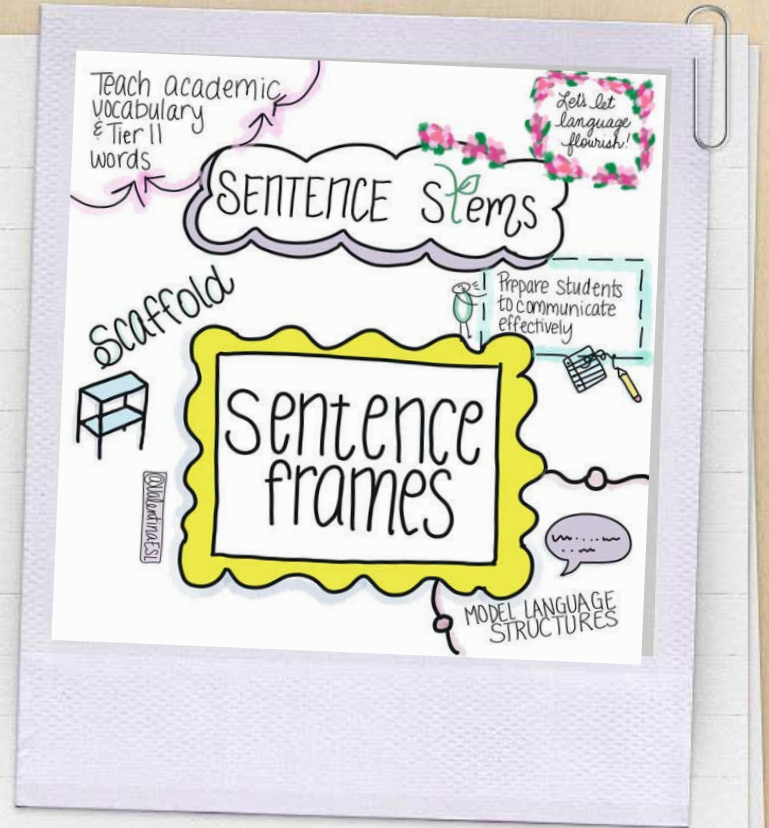 Teach academic
vocabulary
& Tier II
words
Let's let
language
flourish!
SENTENCE Stems
Prepare students
to communicate
effectively
Scaffold
sentence
frames
@ValentinaESL
MODEL LANGUAGE
STRUCTURES